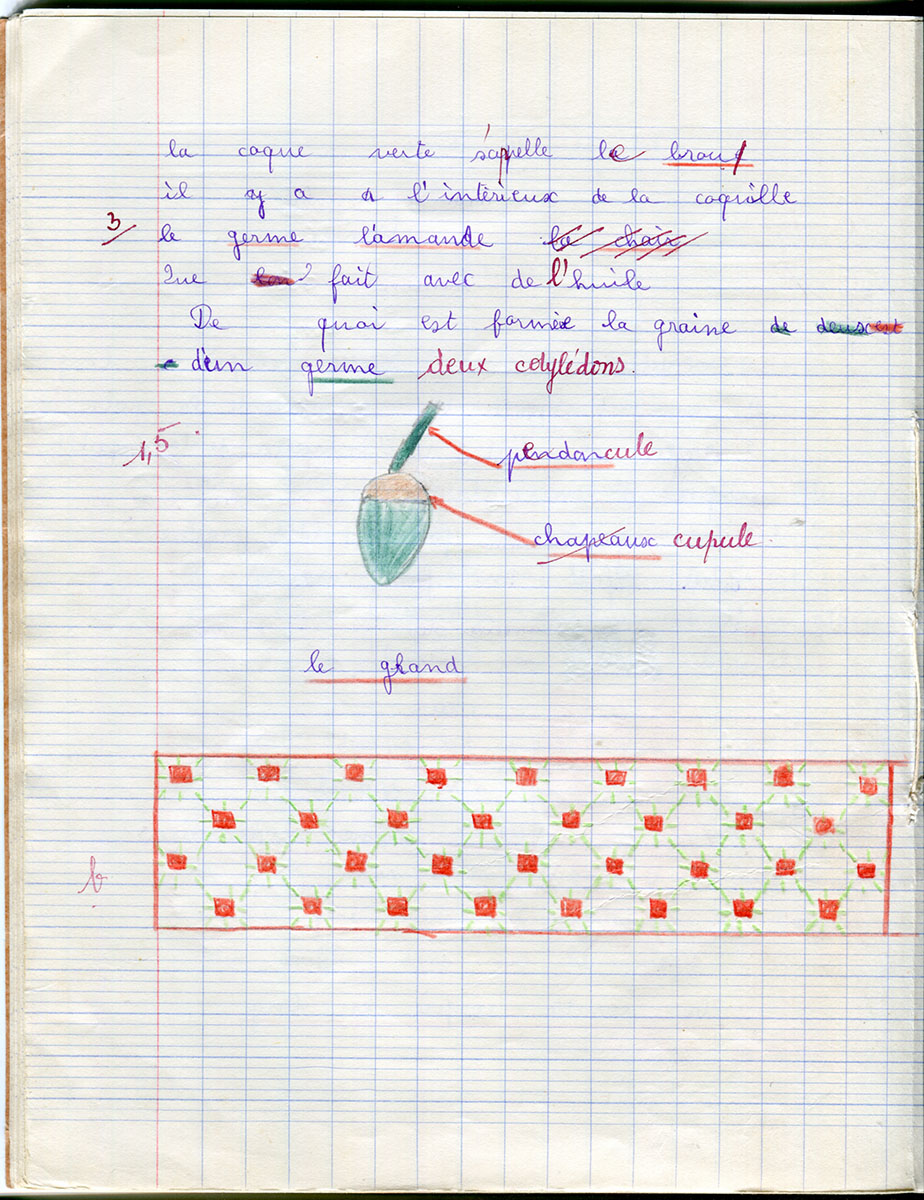 la coque verte s'appelle le brou
il y a a l'intèrieux de la coquille
3
le germe l'amande la chaix
Que fait avec de l'huile
De quoi est formée la graine de deux est
d'un germe deux cotylédons.
1,5
pendoncule
chapeaux cupule
le ghand
b